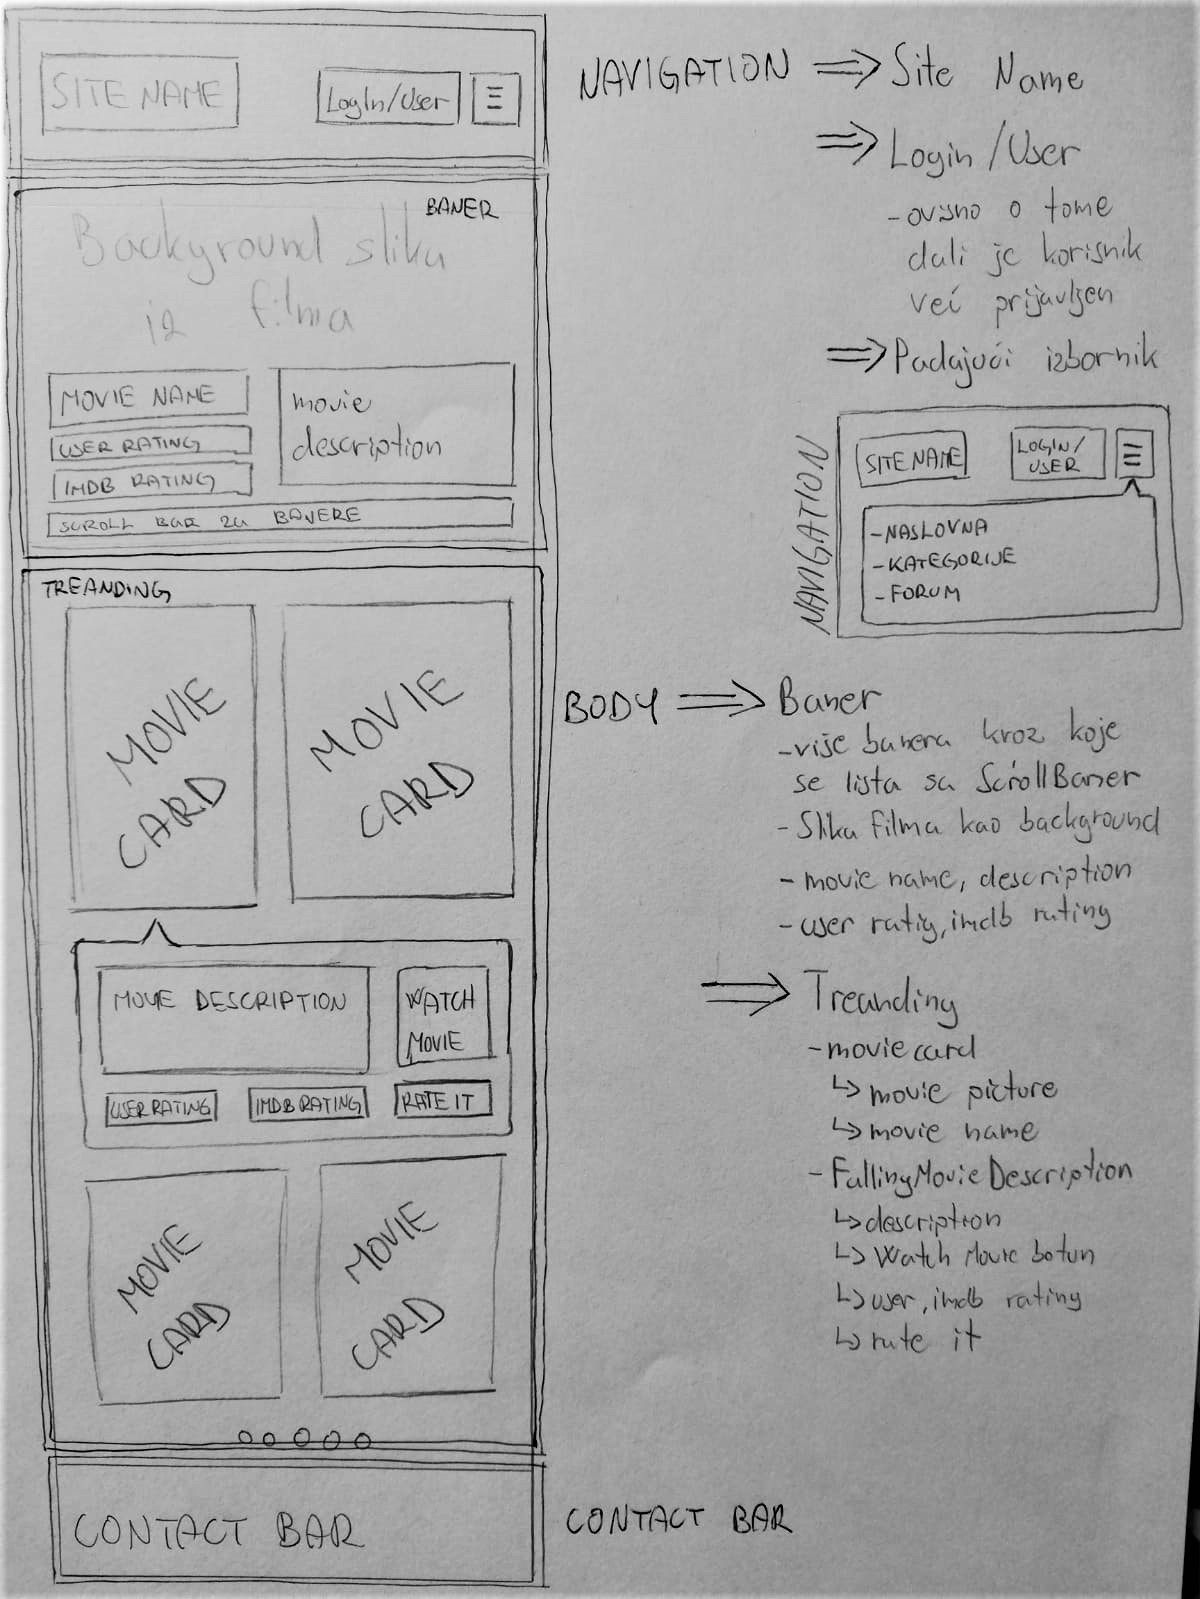 SITE NAME
LogIn/User
BANER
Background slika
iz filma
MOVIE NAME
movie
description
USER RATING
IMDB RATING
SCROLL BAR za BANERE
TREANDING
MOVIE
CARD
MOVIE
CARD
MOVIE DESCRIPTION
WATCH
MOVIE
USER RATING
IMDB RATING
RATE IT
MOVIE
CARD
MOVIE
CARD
CONTACT BAR
NAVIGATION ⇒ Site Name
⇒ Login/User
- ovisno o tome
dali je korisnik
već prijavljen
⇒ Padajući izbornik
NAVIGATION
SITE NAME
LOGIN/
USER
- NASLOVNA
- KATEGORIJE
- FORUM
BODY ⇒ Baner
- više banera kroz koje
se lista sa ScrollBaner
- Slika filma kao background
- movie name, description
- user ratig, imdb rating
⇒ Treanding
- movie card
↳ movie picture
↳ movie name
- FallingMovieDescription
↳ description
↳ Watch Movie botun
↳ user, imdb rating
↳ rate it
CONTACT BAR